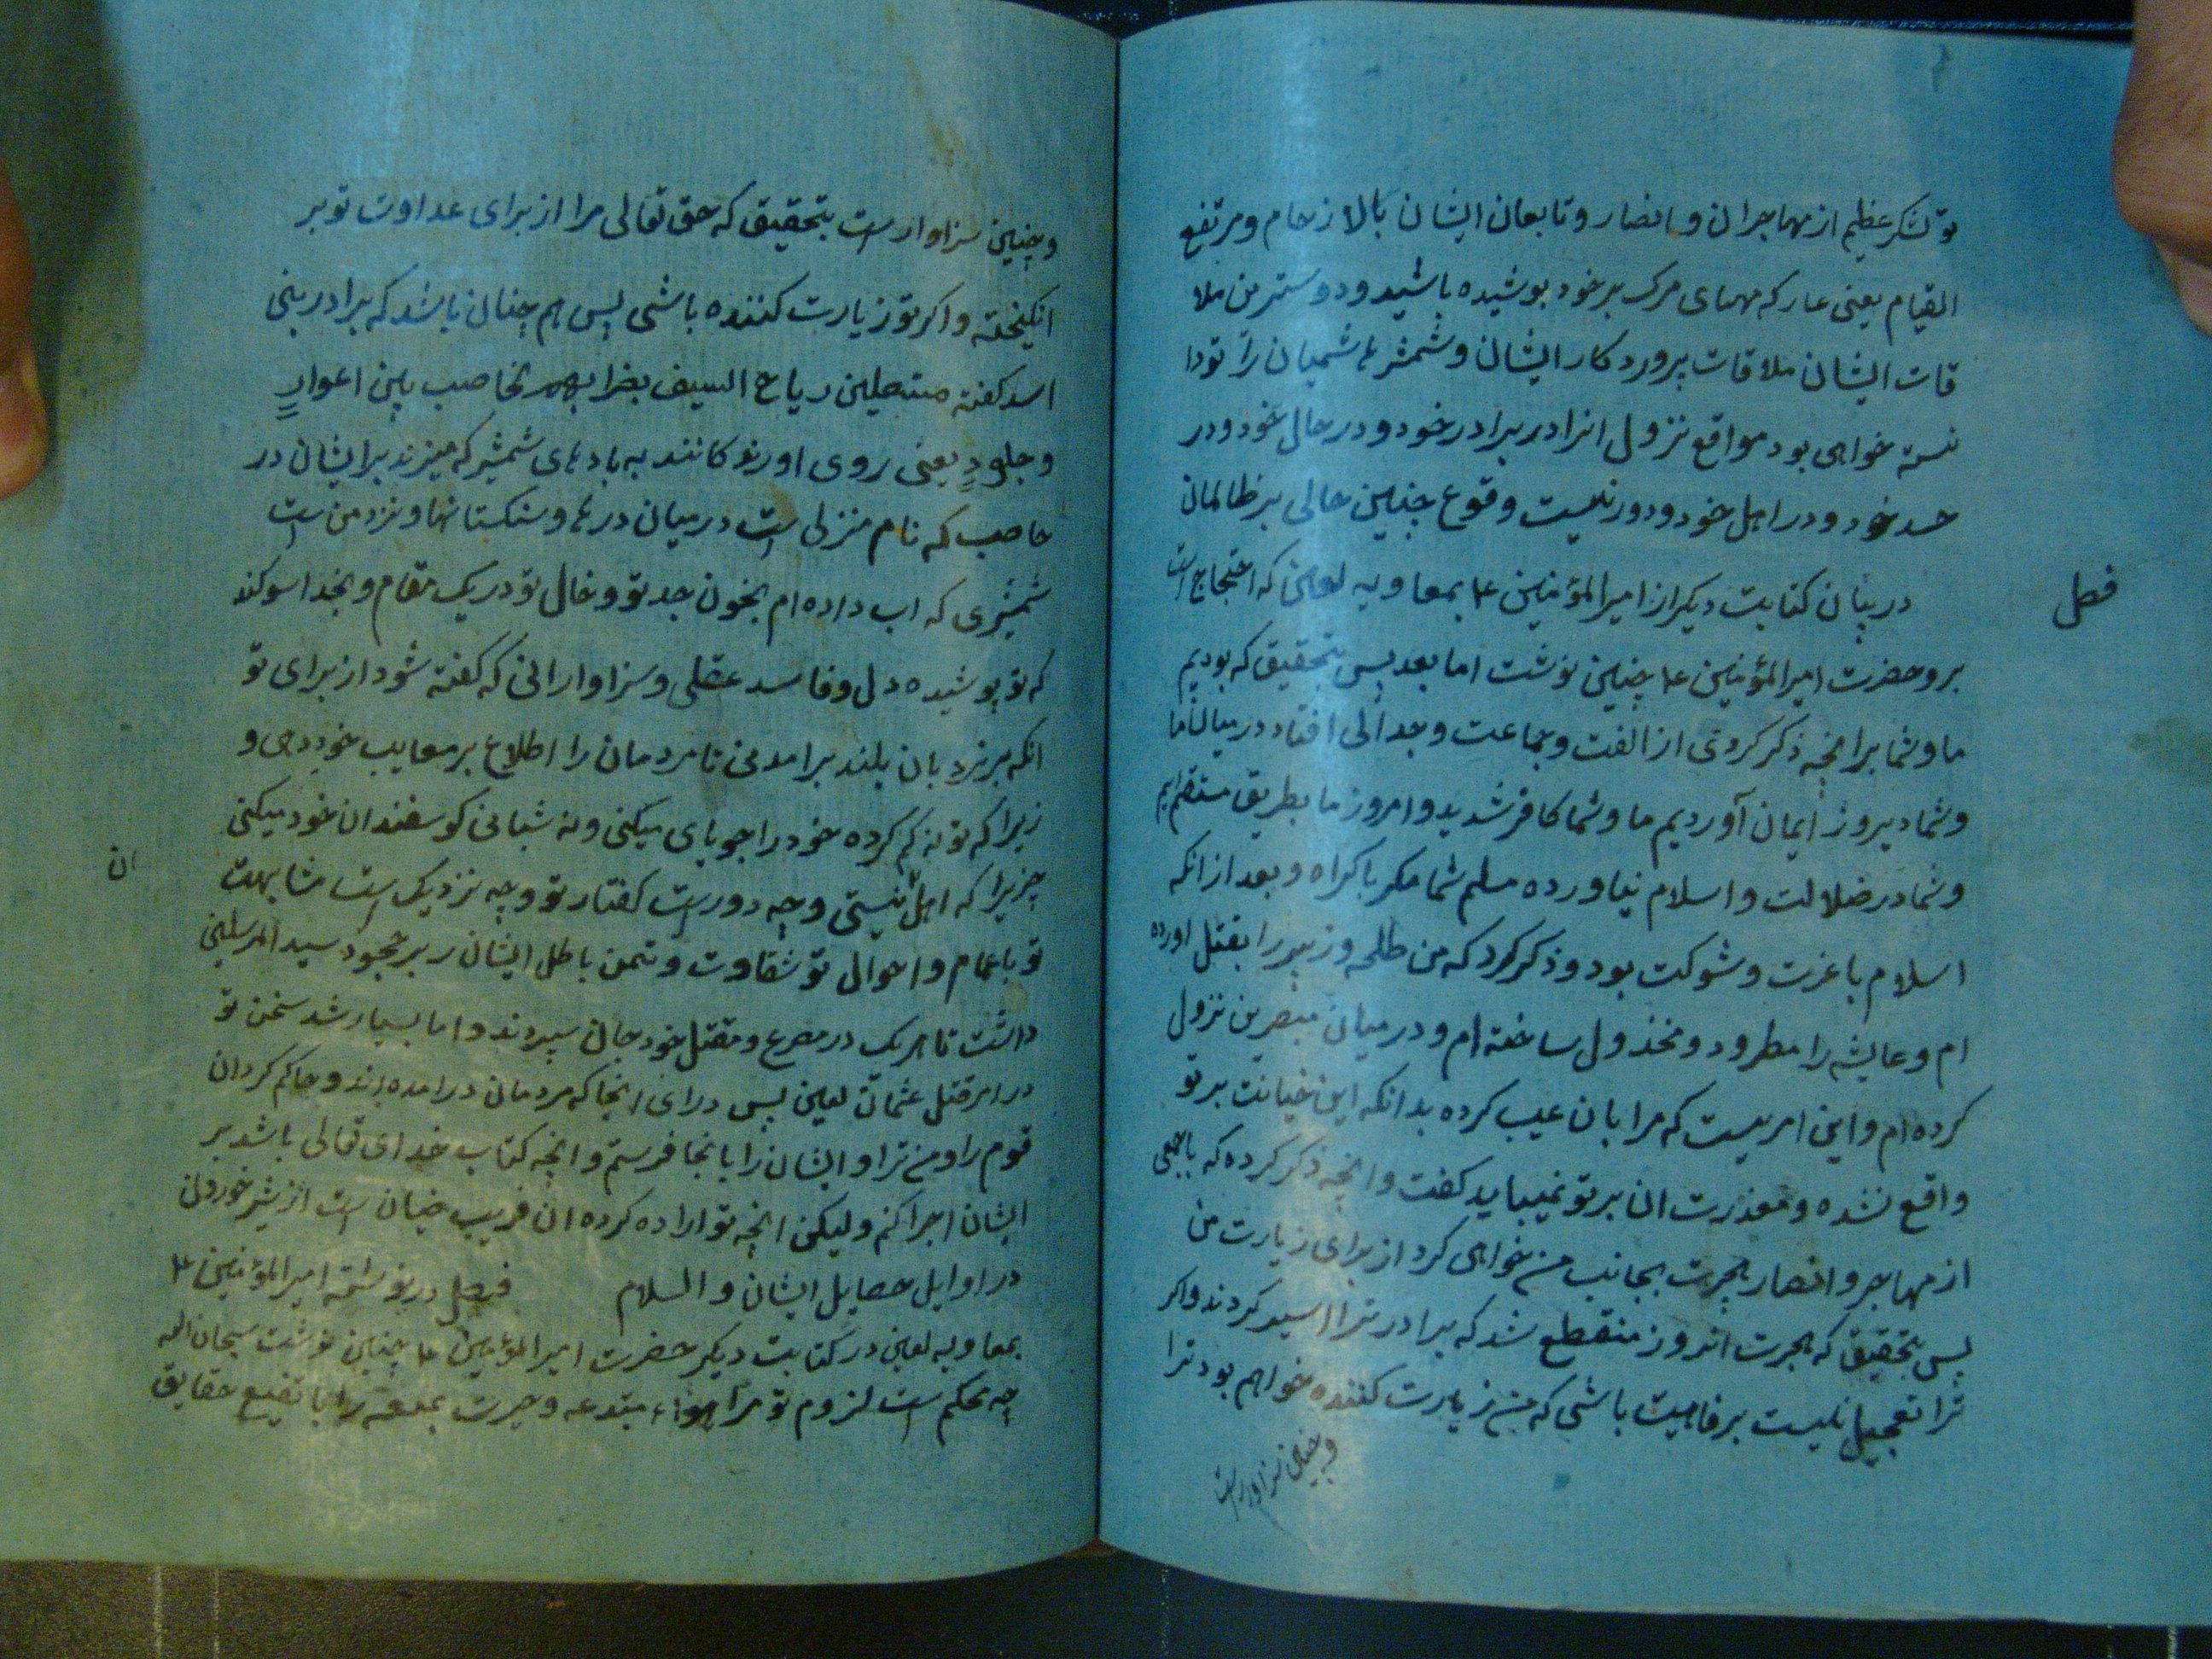 تو لشکر عظیم از مهاجران و انصار و تابعان ایشان بالا زحام و مرتفع
القیام یعنی عار که مهمای مرک بر خود پوشیده باشید و دوستترین ملا
قات ایشان ملاقات پروردکار ایشان و شمشرها شمیان را تو دا
نسته خواهی بود مواقع نزول انرا در برادر خود و در خال خود و در
جد خود و در اهل خود و دور نیست وقوع چنین حالی بر ظالمان
فصل
در بیان کتابت دیکر از امیر المؤمنین ع بمعاویه لعین که احتجاج است
بر و حضرت امیر المؤمنین ع چنین نوشت اما بعد پس بتحقیق که بودیم
ما و شما بر انچه ذکر کردی از الفت و جماعت و جدائی افتاد در میان ما
و شما دیروز ایمان آوردیم ما و شما کافر شدید و امروز ما بطریق مستقیم ایم
و شما در ضلالت و اسلام نیاورده مسلم شما مکر باکراه و بعد از انکه
اسلام با عزت و شوکت بود و ذکر کرد که من طلحه و زبیر را بقتل اورده
ام و عایشه را مطرود و مخذول ساخته ام و در میان مصرین نزول
کرده ام و این امریست که مرا بان عیب کرده بدانکه این خیانت بر تو
واقع نشده و معذرت ان بر تو نمیباید کفت و انچه ذکر کرده که باجمعی
از مهاجر و انصار بهجرت بجانب من خواهی کرد از برای زیارت من
پس بتحقیق که هجرت انروز منقطع شد که برادر ترا اسیر کردند و اکر
ترا تعجیل نیست برفاهیت باشی که من زیارت کننده خواهم بود ترا
و چنین سزاوار است
و چنین سزاوار است بتحقیق که حق تعالی مرا از برای عداوت تو بر
انکیخته و اکر تو زیارت کننده باشی پس هم چنان باشد که برادر بنی
اسد کفته مستقبلین ریاح السیف بضرابهم بحاصب بین اعوار
و جلود یعنی روی اورند کانند به بادهای شمشیر که میزند بر ایشان در
حاصب که نام منزلی است در میان درها و سنکستانها و نزد من است
شمشیری که اب داده ام بخون جد تو و خال تو در یک مقام و بخدا سوکند
که تو پوشیده دل و فاسد عقلی و سزاوار انی که کفته شود از برای تو
انکه بر نردبان بلند برامدی تا مردمان را اطلاع بر معایب خود دهی و
زیرا که تو نه کم کرده خود را جویای میکنی و نه شبانی کوسفندان خود میکنی
چیزیرا که اهل نیستی و چه دور است کفتار تو و چه نزدیک است مشابهت
ان
تو باعمام و اخوال تو شقاوت و تمن باطل ایشان را بر جحود سید المرسلین
داشت تا هریک در مصرع و مقتل خود جان سپردند و اما بسیار شد سخن تو
در امر قتل عثمان لعین پس درای انجا که مردمان درامده اند و حاکم کردان
قوم را و من ترا و ایشان را بانجا فرستم و انچه کتاب خدای تعالی باشد بر
ایشان اجرا کنم و لیکن انچه تو اراده کرده ان فریب ضبیان است از شیر خوردن
در اوایل حصایل ایشان و السلام فصل در نوشته امیر المؤمنین ع
بمعاویه لعین در کتابت دیکر حضرت امیر المؤمنین ع چنین نوشت سبحان الله
چه محکم است لزوم تو مراهواء مبتدعه و حیرت متبعه را با تضییع حقایق